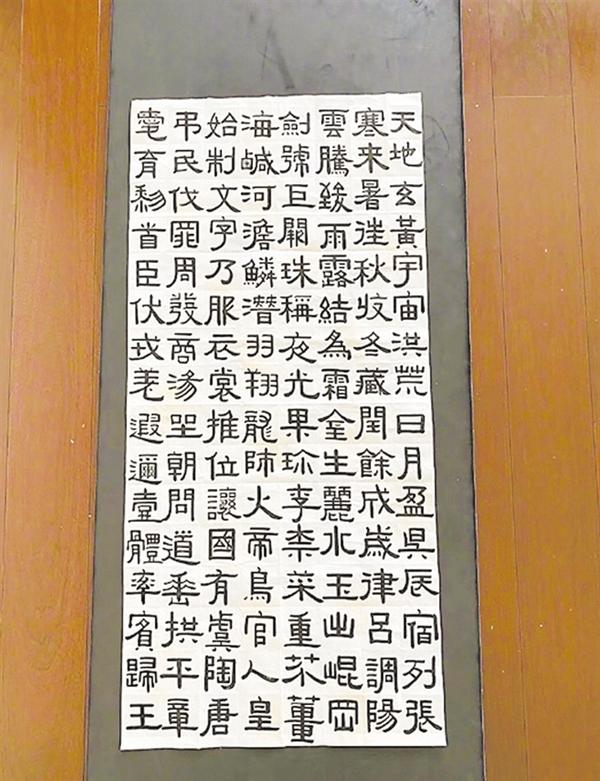 天地玄黃宇宙洪荒日月盈昃辰宿列張
寒来暑往秋收冬藏閏餘成歲律呂調陽
雲騰致雨露結為霜金生麗水玉出崐岡
劍號巨闕珠稱夜光果珎李柰菜重芥薑
海鹹河澹鱗潛羽翔龍師火帝鳥官人皇
始制文字乃服衣裳推位讓國有虞陶唐
弔民伐罪周發商湯坐朝問道垂拱平章
愛育黎首臣伏戎羌遐邇壹體率賓歸王